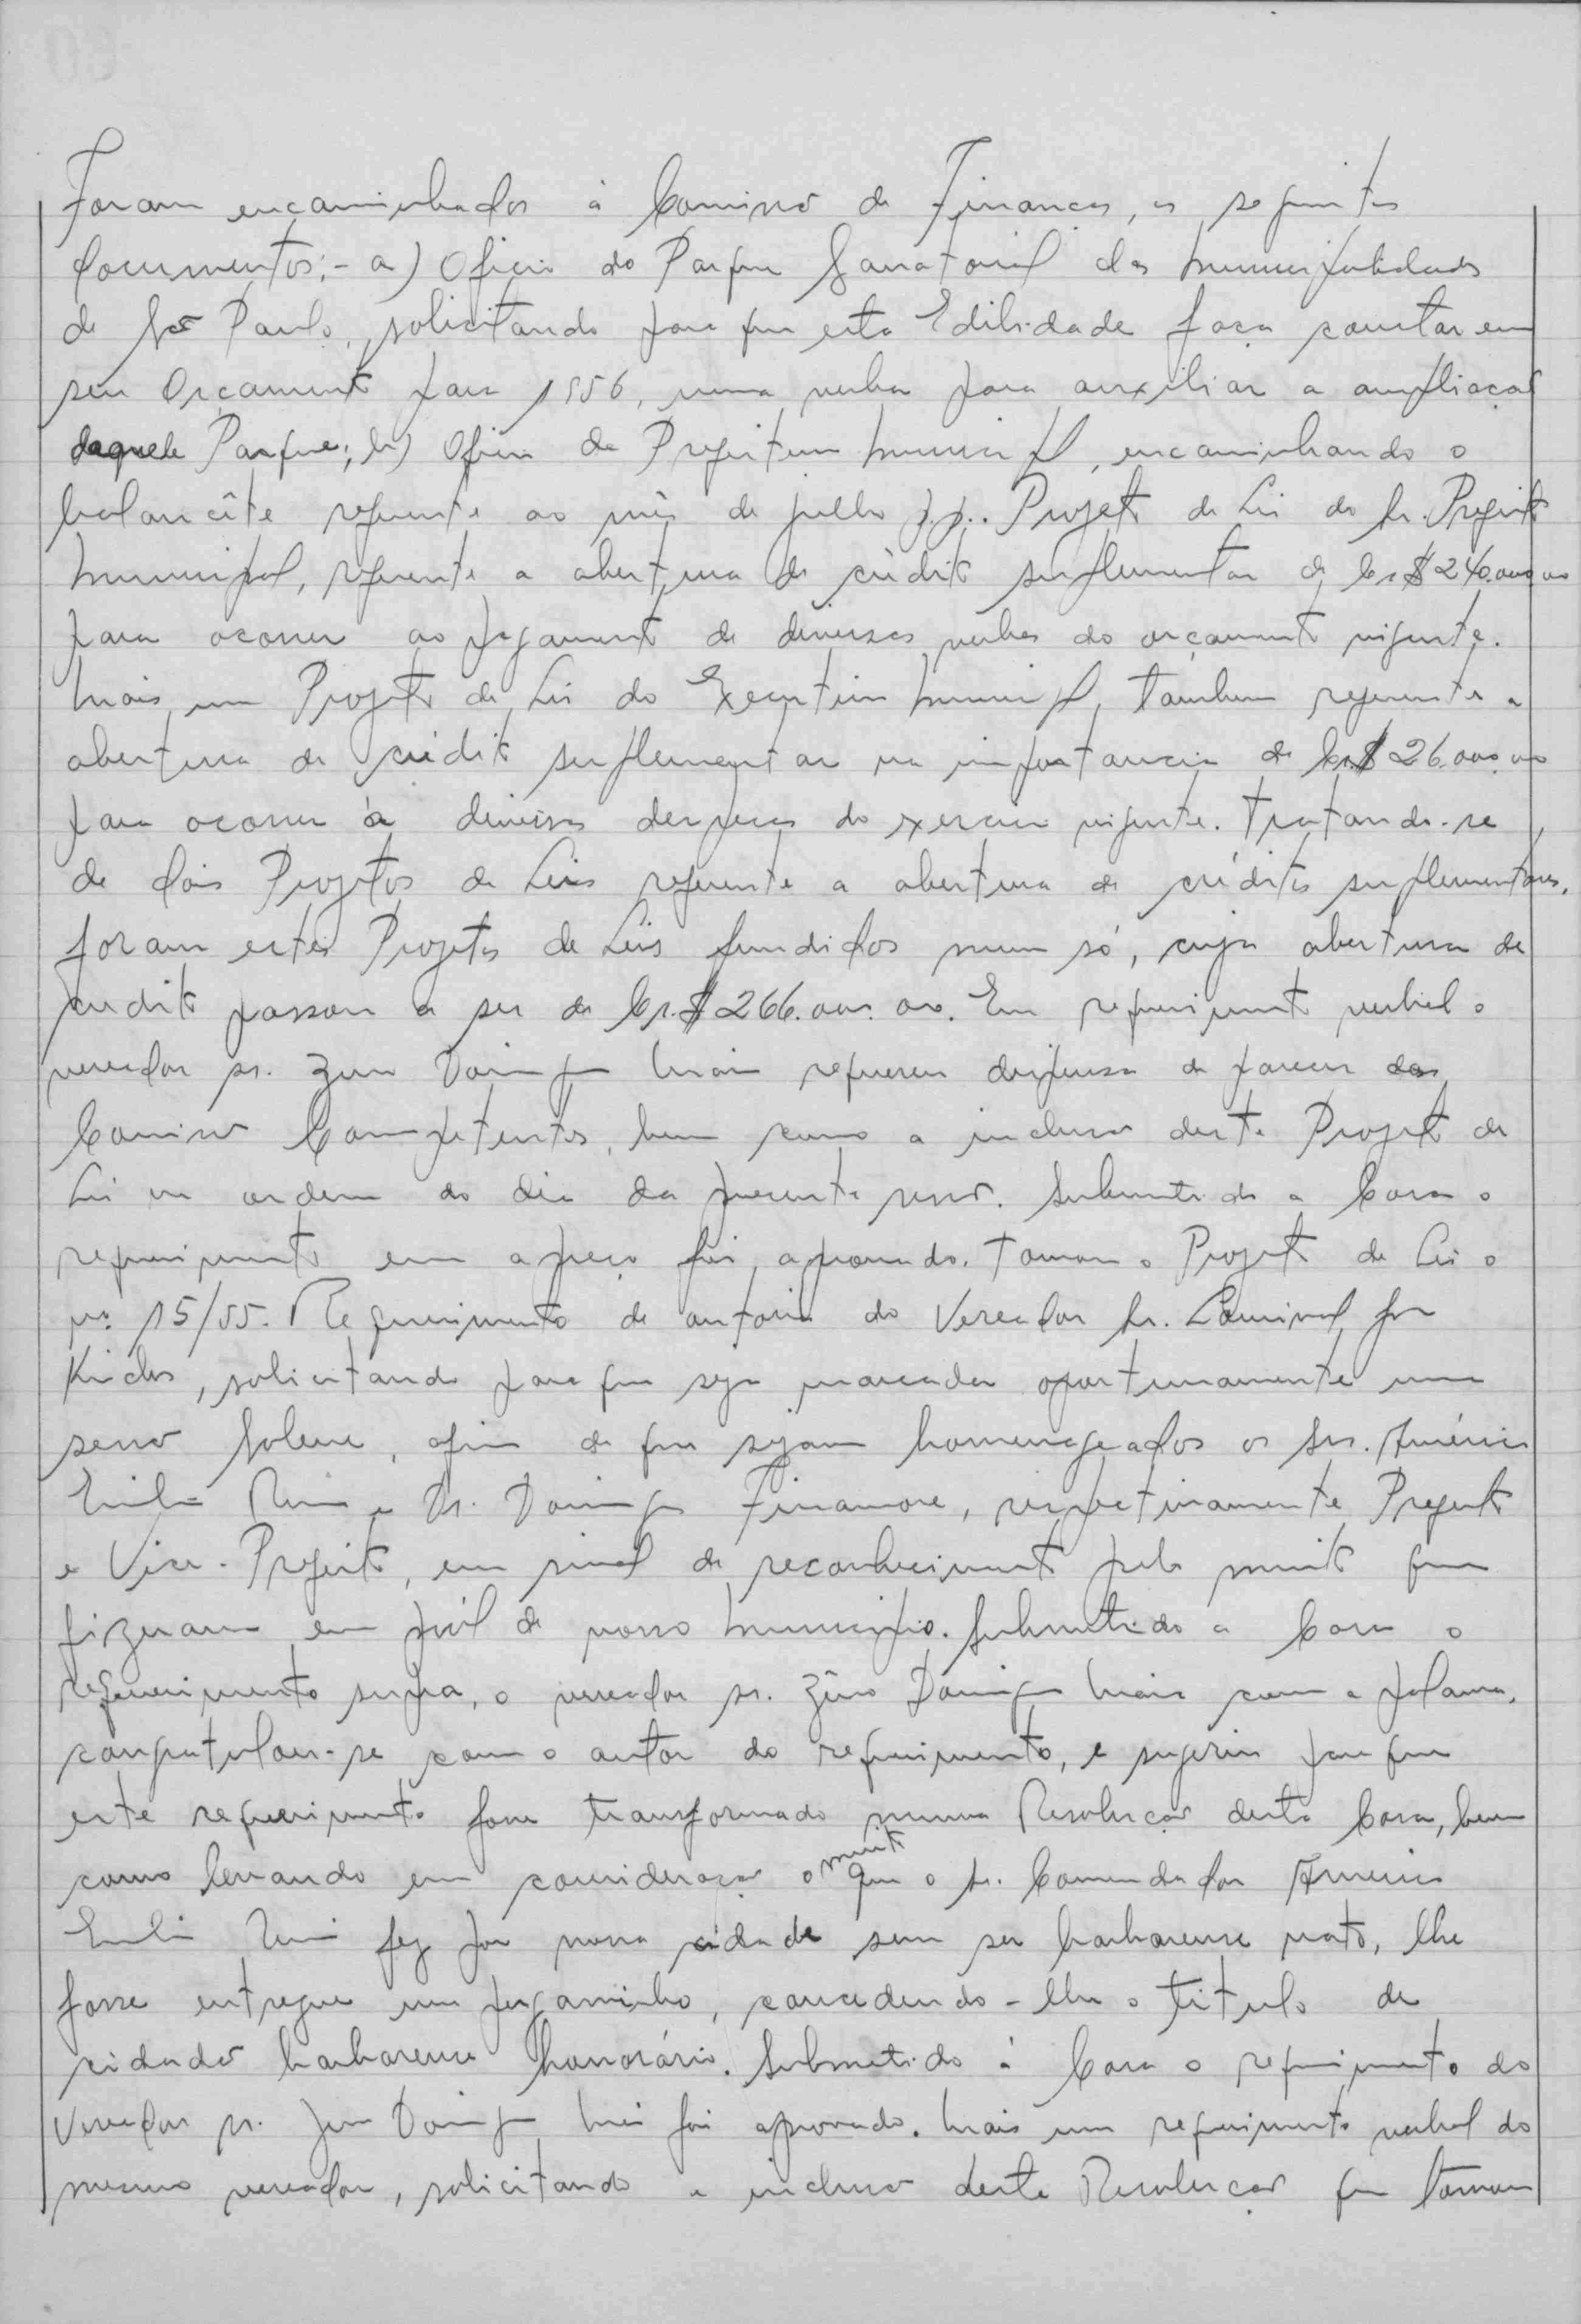 Foram encaminhados á Comissão de Finanças, os seguintes
documentos:- a) Oficio do Parque Sanatorial das Municipalidades
de São Paulo, solicitando para que esta Edilidade faça constar em
seu Orçamento para 1956, uma verba para auxiliar a ampliação
daquele Parque; b) Oficio da Prefeitura Municipal, encaminhando o
balancête referente ao mês de julho p.p.. Projeto de Lei do Sr. Prefeito
Municipal, referente a abertura de crédito suplementar de Cr$ 240.000,00
para ocorrer ao pagamento de diversas verbas do orçamento vigente.
Mais um Projeto de Lei do Executivo Municipal, tambem referente a
abertura de crédito suplementar na importancia de Cr$ 26.000,00
para ocorrer à diversas despesas do exercicio vigente. Tratando-se
de dois Projetos de Leis referente a abertura de créditos suplementares,
foram estes Projetos de Leis fundidos num só, cuja abertura de
credito passou a ser de Cr.$ 266.000,00. Em requerimento verbal o
vereador sr. Zeno Domingos Maia requereu dispensa de parecer das
Comissão Competentes, bem como a inclusão deste Projeto de
Lei na ordem do dia da presente sessão. Submetido a Casa o
requerimento em apreço foi aprovado. Tomou o Projeto de Lei o
nº 15/55. Requerimento de autoria do Vereador Sr.
solicitando para que seja marcada oportunamente uma
sessão Solene, afim de que sejam homenageados os Srs. Américo
Emilio Romi e Dr. Domingos Finamore, respectivamente Prefeito
e Vice-Prefeito, em sinal de reconhecimento pelo muito que
fizeram em pról de nosso Municipio. Submetido a Casa o
requerimento supra, o vereador sr. Zêno Domingos Maia com a palavra,
congratulou-se com o autor do requerimento, e sugeriu para que
este requerimento fosse transformado numa Resolução desta Casa, bem
como levando em consideração o muito que o Sr. Comendador Americo
Emilio Romi fez por nossa cidade sem ser barbarense nato, lhe
fosse entregue um pergaminho, concedendo-lhe o titulo de
cidadão barbarense honorário. Submetido á Casa o requerimento do
Vereador sr. Zeno Domingos Maia foi aprovado. Mais um requerimento verbal do
mesmo vereador, solicitando a inclusão desta Resolução que tomou